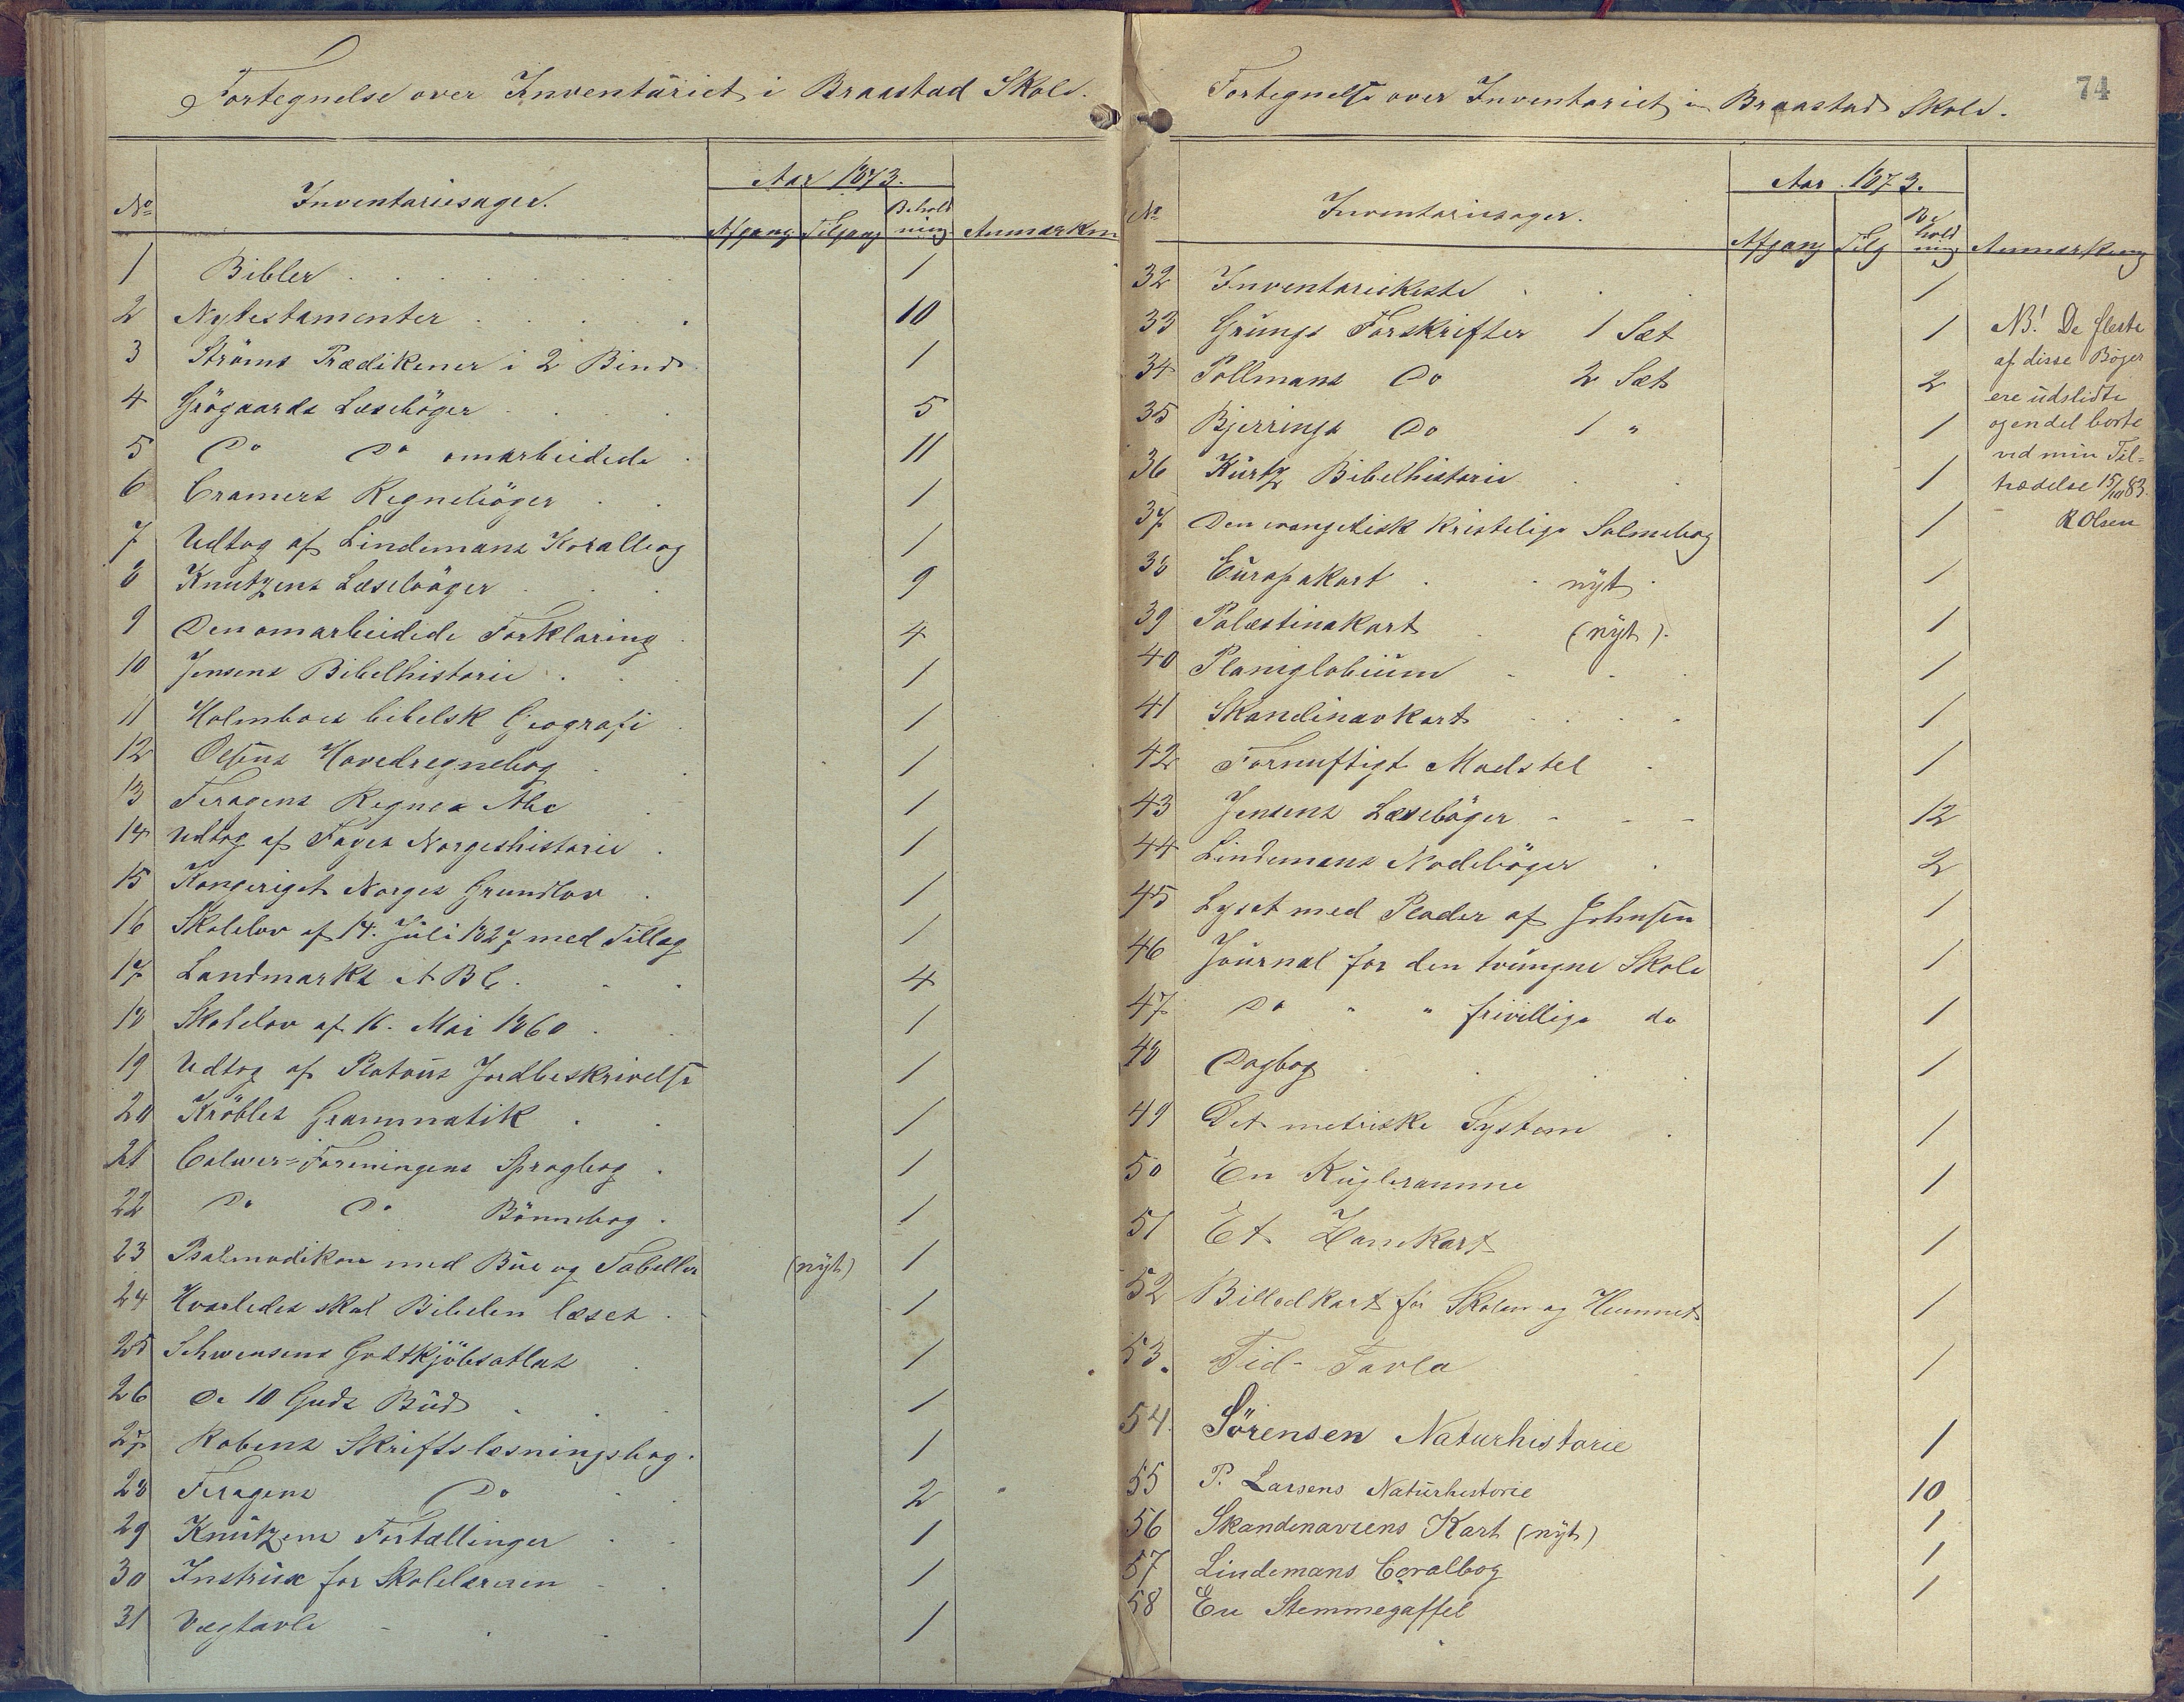 Fortegnelse over Inventariet i Braastad Skole.
Aar 1873.
No Inventariesager. Afgang Tilgang Beholdning Anmærkn
1 Bibler 1
2 Nytestamenter 10
3 Ströms Prædikener i 2 Bind 1
4 Grögaards Læsebøger 5
5 Do Do omarbeidede 11
6 Cramers Regnebøger 1
7 Udtog af Lindemans Koralbog 1
8 Knutzens Læsebøger 9
9 Den omarbeidede Forklaring 4
10 Jensens Bibelhistorie 1
11 Holmboes bibelsk Geografi 1
12 Olsens Hovedregnebog 1
13 Feragens Regnes Abc 1
14 Udtog af Fayes Norgeshistorie 1
15 Kongeriget Norges Grundlov 1
16 Skolelov af 14. Juli 1827 med Tillæg 1
17 Landmarks A B C. 4
18 Skolelov af 16. Mai 1860 1
19 Udtog af Platous Jordbeskrivelse 1
20 Kröbles Grammatik 1
21 Calwer=Foreningens Sprogbog 1
22 Do Do Bönnebog 1
23 Psalmodikon med Bue og Tabeller (nyt) 1
24 Hvorledes skal Bibelen læses 1
25 Schwensens Godtkjöbsatlas 1
26 De 10 Guds Bud 1
27 Robens Skriftslæsningsbog. 1
28 Feragens Do 2
29 Knutzens Fortællinger 1
30 Instrux for Skolelæreren 1
31 Vægtavle 1
74
Fortegnelse over Inventariet i Braastad Skole.
Aar 1873.
No Inventariesager. Afgang Tilg Beholdning Anmærkning
32 Inventariekiste 1
33 Grungs Forskrifter 1 Sæt 1
34 Pollmans Do 2 Sæt 2
35 Bjerrings Do 1 " 1
36 Kurtz Bibelhistorie 1
37 Den evangelisk kristelige Salmebog 1
38 Europakart nyt 1
39 Palæstinakart (nyt). 1
40 Planiglobium 1
41 Skandinavkart 1
42 Fornuftigt Madstel 1
43 Jensens Læsebøger 12
44 Lindemans Nodebøger 2
45 Lyset med Plader af Johnsen 1
46 Journal for den tvungne Skole 1
47 Do " " frivillige do 1
48 Dagbog 1
49 Det metriske System 1
50 En Kugleramme 1
51 Et Hanekart 1
52 Billedkart for Skolen og Hemmet 1
53. Tid-Tavla 1
54. Sörensen Naturhistorie 1
55 P. Larsens Naturhistorie 10
56 Skandenaviens Kart (nyt) 1
57 Lindemans Coralbog 1
58 En Stemmegaffel 1
NB! De fleste
af disse Bøger
ere udslidte
og en del borte
ved min Til=
trædelse 15/10 83.
R Olsen